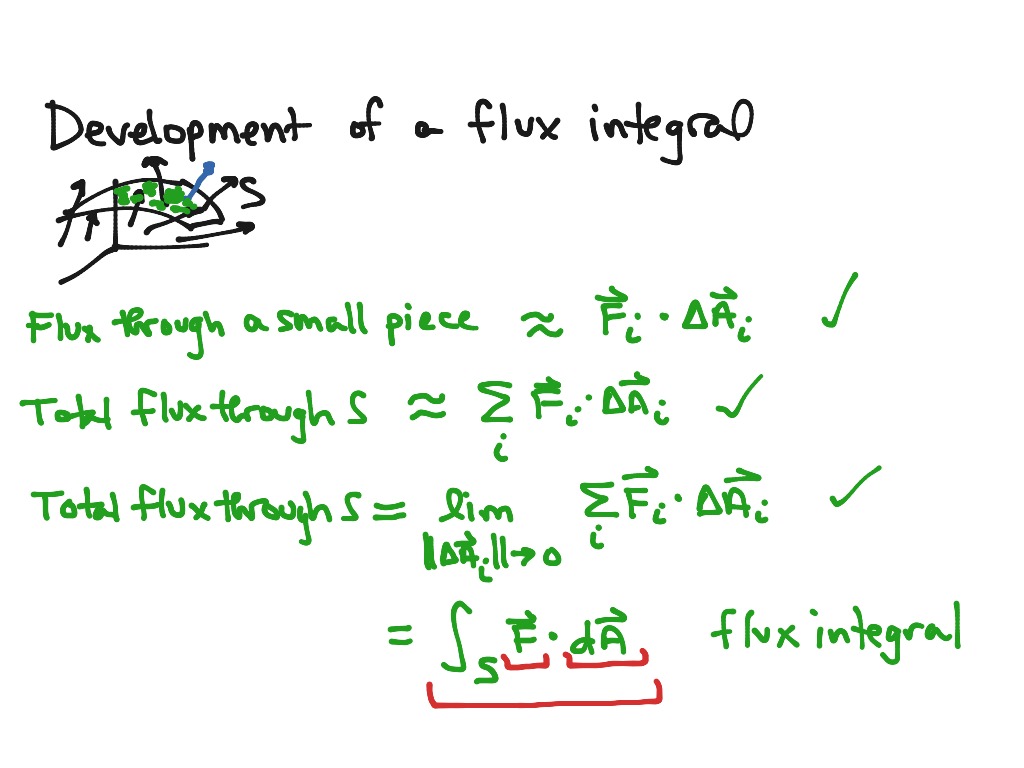 Development of a flux integral
S
Flux through a small piece ≈ F⃗ᵢ · ΔA⃗ᵢ ✓
Total flux through S ≈ ∑ᵢ F⃗ᵢ · ΔA⃗ᵢ ✓
Total flux through S = lim ‖ΔA⃗ᵢ‖→0 ∑ᵢ F⃗ᵢ · ΔA⃗ᵢ ✓
= ∫_S F⃗ · dA⃗ flux integral